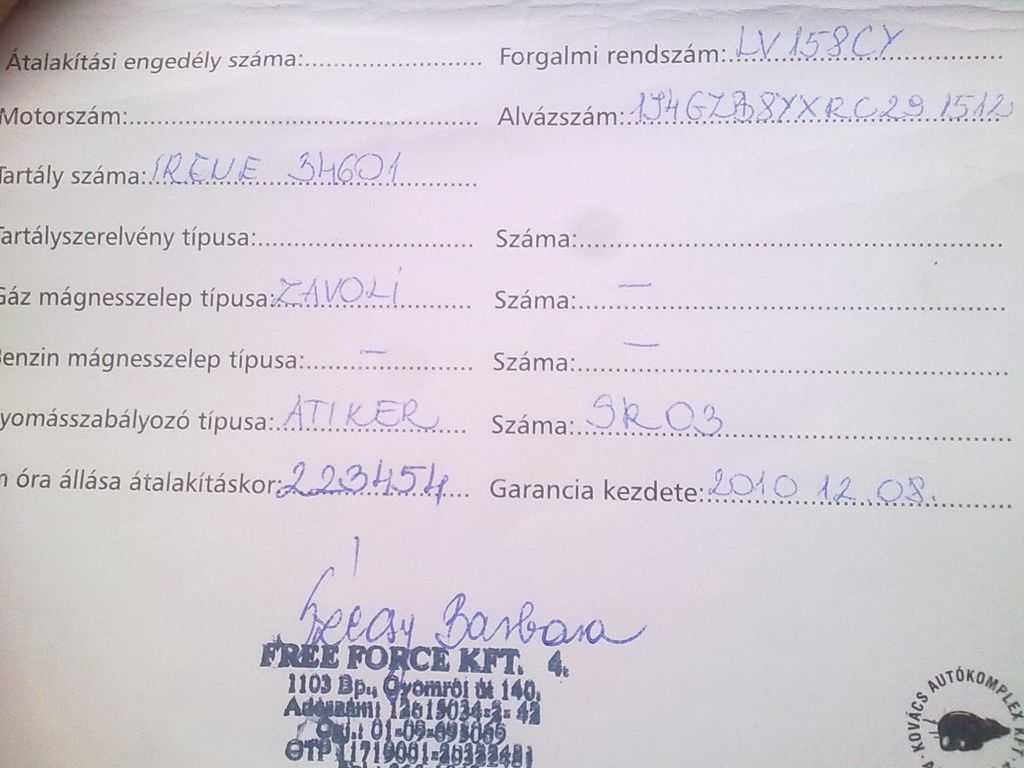 Átalakítási engedély száma:............ Forgalmi rendszám: LV158CY
Motorszám:............ Alvázszám:
Tartály száma: IRENE 34601
Tartályszerelvény típusa:............ Száma:............
Gáz mágnesszelep típusa: ZAVOLI Száma: —
Benzin mágnesszelep típusa: — Száma: —
yomásszabályozó típusa: ATIKER Száma: SR03
óra állása átalakításkor: 223454 Garancia kezdete: 2010 12.08.
Barbara
FREE FORCE KFT. 4.
1103 Bp., Gyömrői út 140.
Adószám: 12615034-2-42
01-09-695069
OTP
KOVÁCS AUTÓKOMPLEX KFT.